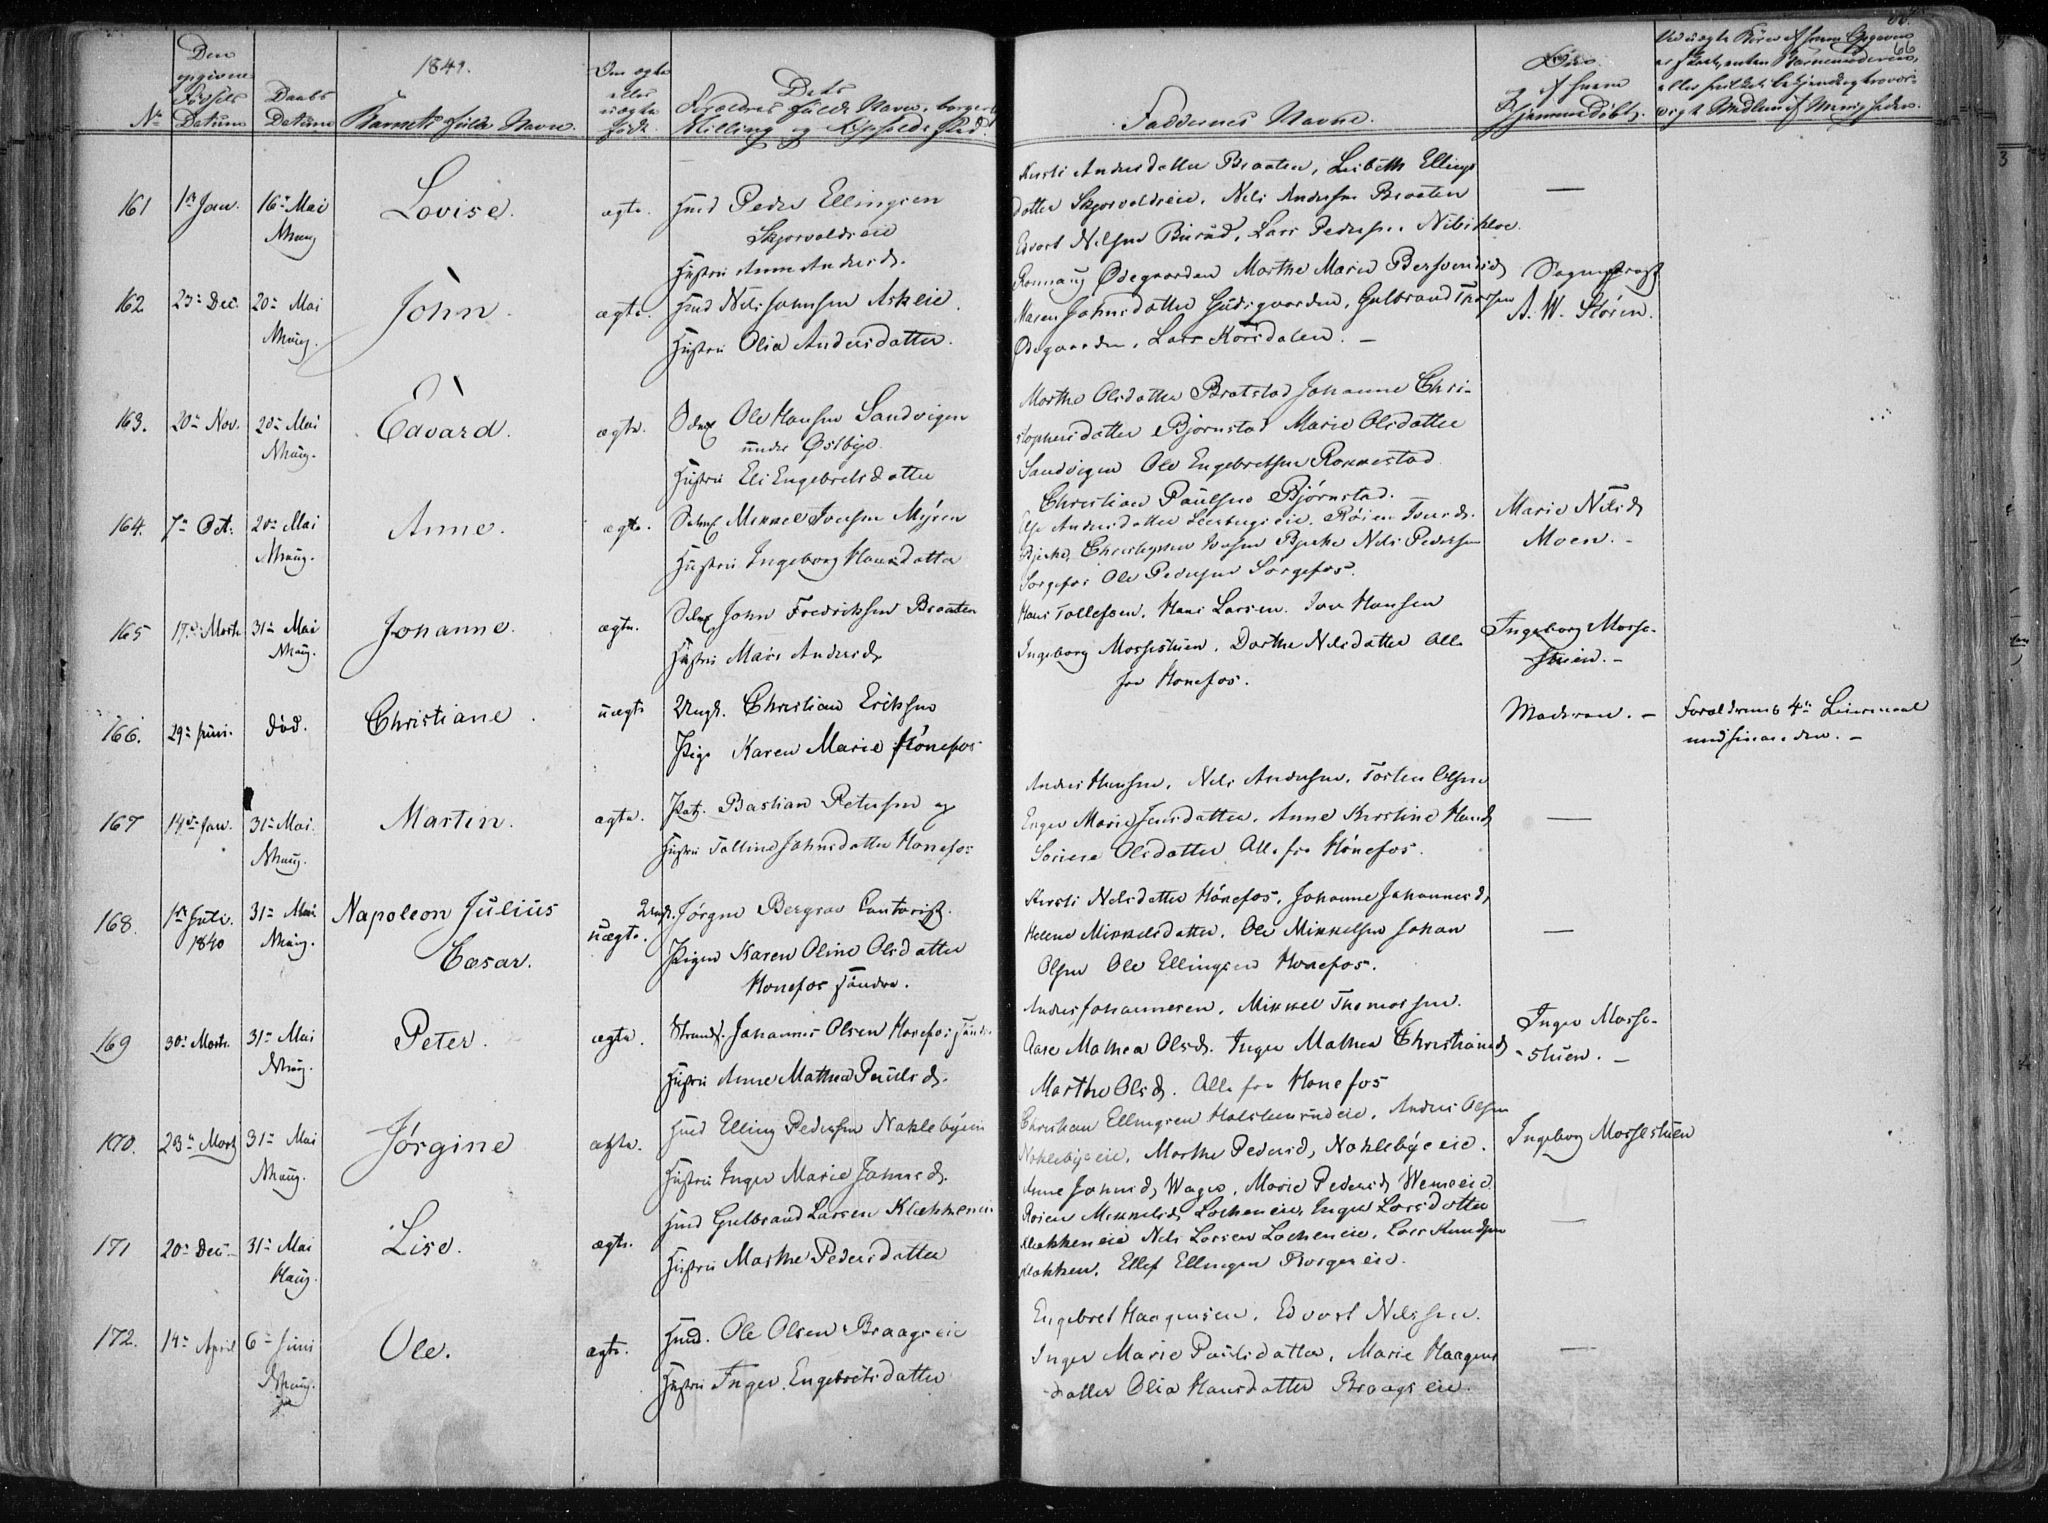 66
1841.
No
Den opgivne Fødsels Datum
Daabs Datum
Barnets fulde Navn.
Om ægte eller uægte født
Dets Forældres fulde Navne, borgerl. Stilling og Opholds Sted.
Faddernes Navne.
og af hvem Hjemmedøbt.
161
1ste Jan.
16de Mai
Nhaug
Lovise.
ægte.
Huusm Peder Ellingsen
Skjorvoldseie
Hustru Anne Andersd.
Kirsti Andersdatter Braaten, Lisbeth Ellings
datter Skjorvoldseie, Nils Andersen Braaten
Edvort Nilsen Buråd, Lars Pedersen
—
162
23de Dec.
20de Mai
Nhaug.
John.
ægte.
Huusm Nils Johnsen Askeie.
Hustru Olia Andersdatter.
Ronnaug Ødegaarden Marthe Marie
Maren Johnsdatter Gudsgaarden, Gulbrand
Ødegaarden, Lars Korsdalen. —
Sogneprest
A. W. Stören.
163.
20de Nov.
20de Mai
Nhaug.
Edvard.
ægte.
Selvej Ole Hansen Sandvigen
under Østbye.
Hustru Eli Engebretsdatter
Marthe Olsdatter Bratstad Johanne Chri-
stophersdatter Bjørnstad Marie Olsdatter
Sandvigen Ole Engebretsen Rommestad
Christian Paulsen Bjørnstad.
164.
7de Oct.
20de Mai
Nhaug.
Anne.
ægte.
Selvej Mikkel Iversen Myren
Hustru Ingeborg Hansdatter
Andersdatter Røien Iversd.
Bjerke, Christopher Iversen Bjerke Nils Pedersen
Sørgefos Ole Pedersen Sørgefos.
Marie Nilsd.
Moen. —
165
17de Marts
31te Mai
Nhaug.
Johanne.
ægte.
Selvej John Fredriksen Braaten
Hustru Mari Andersd.
Hans Tollefsen. Hans Larsen. Iver Hansen
Ingeborg Mossestuen. Dorthe Nilsdatter Alle
fra Honefos.
Ingeborg Mosse-
stuen. —
166.
29de Juni.
død.
Christiane.
uægte
Ungk. Christian Eriksen
Pige Karen Marie Hønefos
Moderen. —
Forældrenes 4de Leiermaal
med hinanden. —
167
14de Jan.
31te Mai.
Nhaug.
Martin.
ægte.
Bastian Petersen og
Hustru Talline Johnsdatter Honefos
Anders Hansen. Nils Andersen. Torsten Olsen
Enger Marie Jensdatter. Anne Kirstine Hansd.
Olsdatter Alle fra Hönefos.
—
168.
1ste Juli.
1840
31te Mai
Nhaug.
Napoleon Julius
Cæsar.
uægte.
Ungk. Jörgen Bergrav Contorist.
Pigen Karen Oline Olsdatter
Honefos söndre.
Kirsti Nilsdatter Hönefos, Johanne Johannesd.
Helene Mikkelsdatter. Ole Mikkelsen Johan
Olsen Ole Ellingsen Honefos.
—
169
30te Marts.
31te Mai
Nhaug.
Peter.
ægte.
Strands. Johannes Olsen Honefos
Hustru Anne Mathea Paulsd.
Anders Johannesen, Mikkel Thomassen.
Aase Mathea Olsd. Inger Mathea Christiansd.
Marthe Olsd. Alle fra Honefos
Inger Mosse-
-stuen. —
170.
23de Marts
31te Mai
Nhaug.
Jørgine
ægte.
Huusm Elling Pedersen Naklebyeeie
Hustru Inger Marie Johnsd.
Christian Ellingsen Halstensrudeie. Anders Olsen
Naklebyeeie. Marthe Pedersd, Naklebyeeie.
Anne Johnsd, Wager. Marie Pedersd Wemeeie
Ingeborg Mossestuen
171
20de Dec.
31te Mai
Haug.
Lise.
ægte.
Huusm Gulbrand Larsen Klækkeneie
Hustru Marthe Pedersdatter
Røien Mikkelsd, Locheneie, Inger Larsdatter
Klækkeneie Nils Larsen Locheneie, Lars Knudsen
Klækken, Ellef Ellingsen
—
172.
14de April
6te Juni
Nhaug.
Ole.
ægte.
Huusm. Ole Olsen Braagseie
Hustru Inger Engebretsdatter
Engebret Haagensen. Edvort Nilssen.
Inger Marie Paulsdatter, Marie Haagens
datter Olia Hansdatter Braagseie.
—